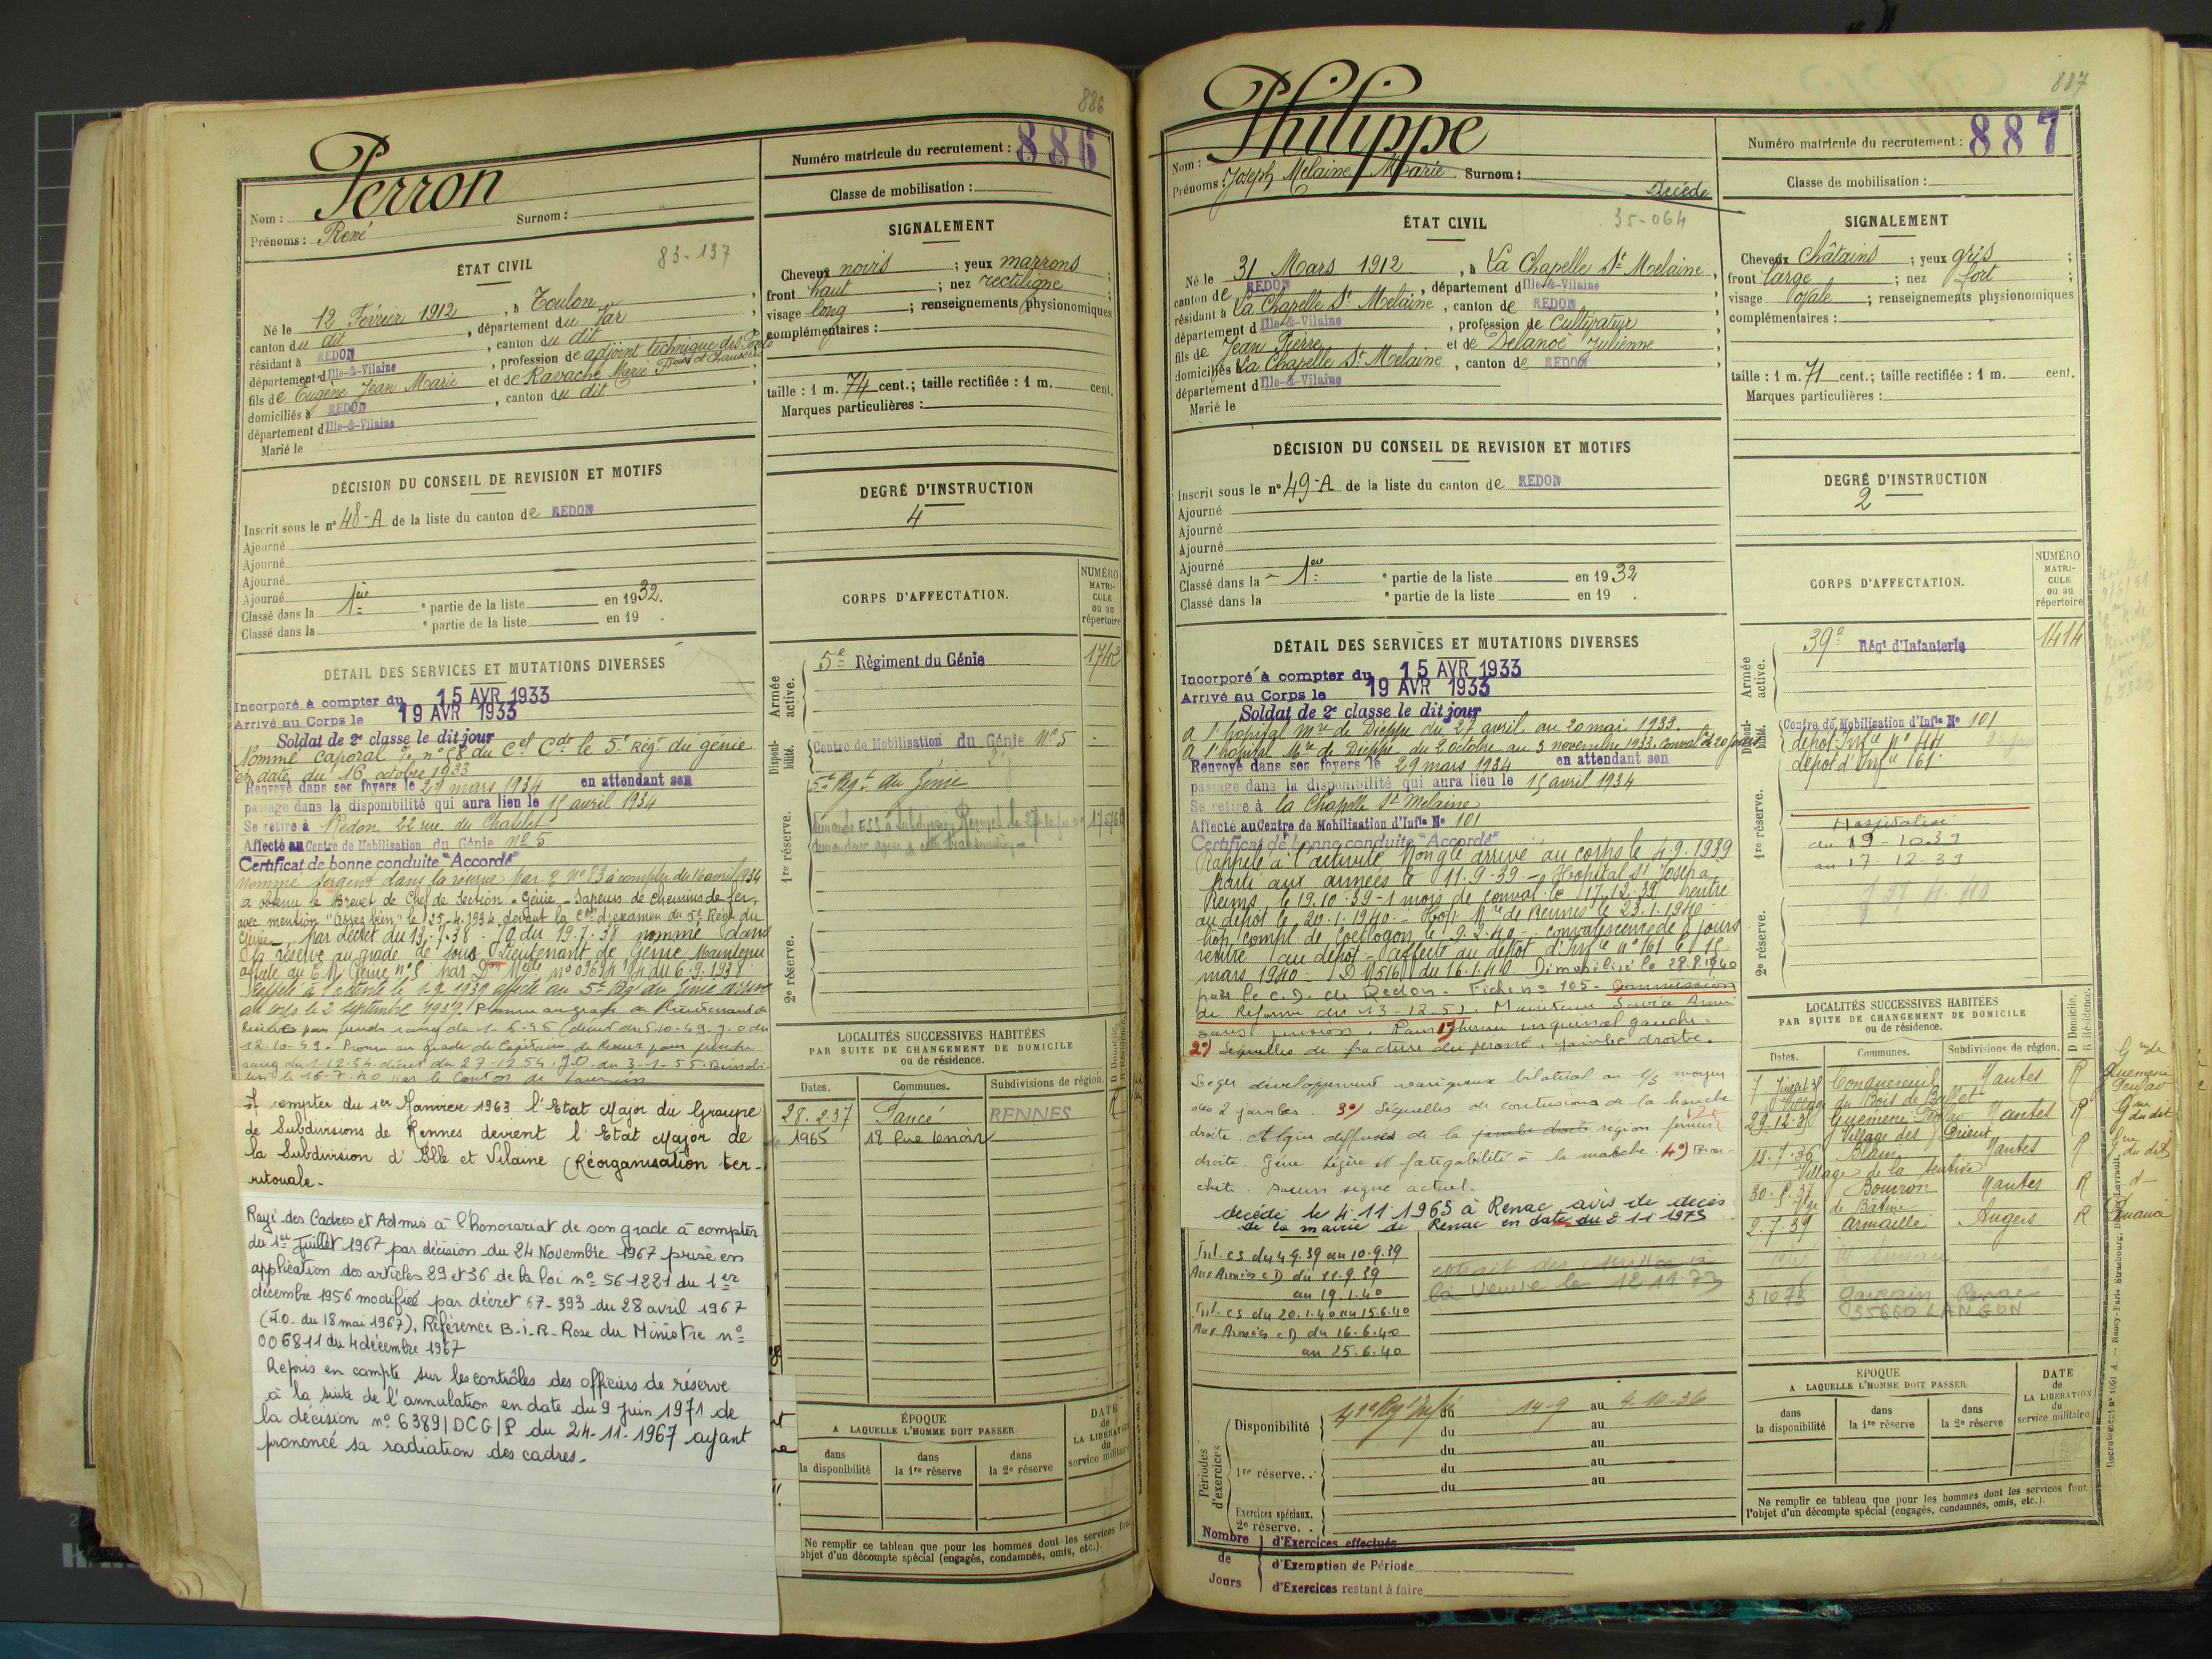 886
Perron
Nom :
Surnom :
Prénoms : René
Numéro matricule du recrutement : 886
Classe de mobilisation :
ÉTAT CIVIL
83-137
Né le 12 Février 1912, à Toulon,
canton du dit, département du Var
résidant à REDON, canton du dit
département d'Ille-&-Vilaine, profession de adjoint technique des Ponts et Chaussées
fils de Eugène Jean Marie et de Ravaché Marie
domiciliés à REDON, canton du dit,
département d'Ille-&-Vilaine
Marié le
SIGNALEMENT
Cheveux noirs ; yeux marrons ;
front haut ; nez rectiligne ;
visage long ; renseignements physionomiques
complémentaires :
taille : 1 m. 74 cent.; taille rectifiée : 1 m. cent.
Marques particulières :
DÉCISION DU CONSEIL DE REVISION ET MOTIFS
Inscrit sous le nº 48-A de la liste du canton de REDON
Ajourné
Ajourné
Ajourné
Ajourné
Classé dans la 1ère e partie de la liste en 1932.
Classé dans la e partie de la liste en 19 .
DEGRÉ D'INSTRUCTION
4
DÉTAIL DES SERVICES ET MUTATIONS DIVERSES
Incorporé à compter du 15 AVR 1933
Arrivé au Corps le 19 AVR 1933
Soldat de 2e classe le dit jour
Nommé caporal nº 58 du Cel Cdt le 5e Régt du génie
en date du 16 octobre 1933
Renvoyé dans ses foyers le 29 mars 1934 en attendant son
passage dans la disponibilité qui aura lieu le 15 avril 1934
Se retire à Redon 22 rue du Chatelet
Affecté au Centre de Mobilisation du Génie Nº 5
Certificat de bonne conduite "Accordé"
nommé sergent dans la réserve par nº 83 à compter du 16 avril 1934
a obtenu le Brevet de Chef de Section - Génie - Sapeurs de chemins de fer,
avec mention "assez bien" le 25-4-1934 devant la Con d'examen du 5e Régt du
Génie. par décret du 13-7-38 - JO du 19.7.38 nommé dans
la réserve au grade de Sous-Lieutenant de Génie Maintenu
Rappelé à l'activité le 1.9.1939 affecté au 5e Rég du Génie arrivé
au corps le 2 septembre 1939. Promu au grade de Lieutenant de
12-10-49. Promu au grade de Capitaine de Réserve pour prendre
rang du 1-12-54 décret du 27-12-54. J.O. du 3-1-55. Démobi-
lisé le 16-7-40 par le Centre de
A compter du 1er Janvier 1963 l'Etat Major du Groupe
de Subdivisions de Rennes devient l'Etat Major de
la Subdivision d'Ille et Vilaine (Réorganisation ter-
ritoriale.
Rayé des Cadres et Admis à l'honorariat de son grade à compter
du 1er Juillet 1967 par décision du 24 Novembre 1967 prise en
application des articles 29 et 36 de la loi nº 56-1221 du 1er
décembre 1956 modifiée par décret 67-393 du 28 avril 1967
(J.O. du 18 mai 1967), Référence B.i.R. Rose du Ministre nº
006811 du 4 décembre 1967
Repris en compte sur les contrôles des officiers de réserve
à la suite de l'annulation en date du 9 juin 1971 de
la décision nº 6389/DCG/P du 24-11-1967 ayant
prononcé sa radiation des cadres.
CORPS D'AFFECTATION.
NUMÉRO MATRI-CULE ou au répertoire
Armée active.
5e Régiment du Génie
1742
Disponi-bilité.
Centre de Mobilisation du Génie Nº 5
1re réserve.
5e Régt du Génie
2e réserve.
LOCALITÉS SUCCESSIVES HABITÉES
PAR SUITE DE CHANGEMENT DE DOMICILE
ou de résidence.
D Domicile.
R Résidence.
Dates. Communes. Subdivisions de région.
28.2.37 Pancé RENNES
1965 18 Rue Lenoir
ÉPOQUE
A LAQUELLE L'HOMME DOIT PASSER
DATE de LA LIBÉRATION du service militaire
dans la disponibilité
dans la 1re réserve
dans la 2e réserve
Ne remplir ce tableau que pour les hommes dont les services font
l'objet d'un décompte spécial (engagés, condamnés, omis, etc.).
887
Philippe
Nom :
Prénoms : Joseph Melaine Marie Surnom :
Décédé
Numéro matricule du recrutement : 887
Classe de mobilisation :
ÉTAT CIVIL
35-064
Né le 31 Mars 1912, à La Chapelle St Melaine,
canton de REDON, département d'Ille-&-Vilaine
résidant à La Chapelle St Melaine, canton de REDON
département d'Ille-&-Vilaine, profession de Cultivateur
fils de Jean Pierre et de Delanoë Julienne
domiciliés à La Chapelle St Melaine, canton de REDON
département d'Ille-&-Vilaine
Marié le
SIGNALEMENT
Cheveux châtains ; yeux gris ;
front large ; nez fort ;
visage ovale ; renseignements physionomiques
complémentaires :
taille : 1 m. 71 cent.; taille rectifiée : 1 m. cent.
Marques particulières :
DÉCISION DU CONSEIL DE REVISION ET MOTIFS
Inscrit sous le nº 49-A de la liste du canton de REDON
Ajourné
Ajourné
Ajourné
Ajourné
Classé dans la 1ère e partie de la liste en 1932
Classé dans la e partie de la liste en 19 .
DEGRÉ D'INSTRUCTION
2
DÉTAIL DES SERVICES ET MUTATIONS DIVERSES
Incorporé à compter du 15 AVR 1933
Arrivé au Corps le 19 AVR 1933
Soldat de 2e classe le dit jour
A l'hôpital Mre de Dieppe du 27 avril au 20 mai 1933.
A l'hôpital Mre de Dieppe du 2 octobre au 3 novembre 1933. Conval. de 20 jours
Renvoyé dans ses foyers le 29 mars 1934 en attendant son
passage dans la disponibilité qui aura lieu le 15 avril 1934
Se retire à la Chapelle St Melaine
Affecté au Centre de Mobilisation d'Infie Nº 101
Certificat de bonne conduite "Accordé"
Rappelé à l'activité arrivé au corps le 4.9.1939
Parti aux armées le 11.9.39 - Hôpital St Joseph
Reims, le 19.10.39 - 1 mois de conval. le 17.12.39 rentré
au dépôt le 20.1.1940 - Hôp. Mre de Rennes le 23.1.1940 -
hôp. compl. de Coëtlogon le 9.2.40 - convalescence de 8 jours
rentré au dépôt - affecté au dépôt d'Infie nº 161 le 15
mars 1940 - du 16.1.40. Démobilisé le 28.8.1940
par le C.D. de Redon - Fiche nº 105 - Commission
de Réforme du 13-12-51. Maintenu Service Armé
sans pension. Pour 1º) hernie inguinale gauche -
2º) Séquelles de fracture du péroné, jambe droite.
Léger développement variqueux bilatéral au 1/3 moyen
des 2 jambes. 3º) Séquelles de contusions de la hanche
droite. Algies diffuses de la jambe droite région fémur
droite. Gêne légère et fatigabilité à la marche. 4º) Bron-
chite. Aucun signe actuel.
décédé le 4.11.1965 à Renac avis de décès
de la mairie de Renac en date du 8 11 1973
Int. CS du 4.9.39 au 10.9.39
Aux Armées CD du 11.9.39
au 19.1.40
Int. CS du 20.1.40 au 15.6.40
Aux Armées CD du 16.6.40
au 25.6.40
extrait des services à
la veuve le 12 11 73
Périodes d'exercices
Disponibilité 41e Régt Infie du 14-9 au 4-10-36
du au
du au
1re réserve.. du au
du au
Exercices spéciaux.
2e réserve..
Nombre de Jours
d'Exercices effectués
d'Exemption de Période
d'Exercices restant à faire
CORPS D'AFFECTATION.
NUMÉRO MATRI-CULE ou au répertoire
Armée active.
39e Régt d'Infanterie
1414
Disponi-bilité.
Centre de Mobilisation d'Infie Nº 101
dépôt Infie nº 44
dépôt d'Infie 161
1re réserve.
Hospitalisé
du 19-10-39
au 17-12-39
2e réserve.
LOCALITÉS SUCCESSIVES HABITÉES
PAR SUITE DE CHANGEMENT DE DOMICILE
ou de résidence.
D Domicile.
R Résidence.
Dates. Communes. Subdivisions de région.
Conquereuil Nantes R
Guémené Penfao Nantes R
12.7.36 Blain Nantes R
30.8.37 Bouvron Nantes R
2.7.39 Armaillé Angers R
3.10.73
35660 LANGON
ÉPOQUE
A LAQUELLE L'HOMME DOIT PASSER
DATE de LA LIBÉRATION du service militaire
dans la disponibilité
dans la 1re réserve
dans la 2e réserve
Ne remplir ce tableau que pour les hommes dont les services font
l'objet d'un décompte spécial (engagés, condamnés, omis, etc.).